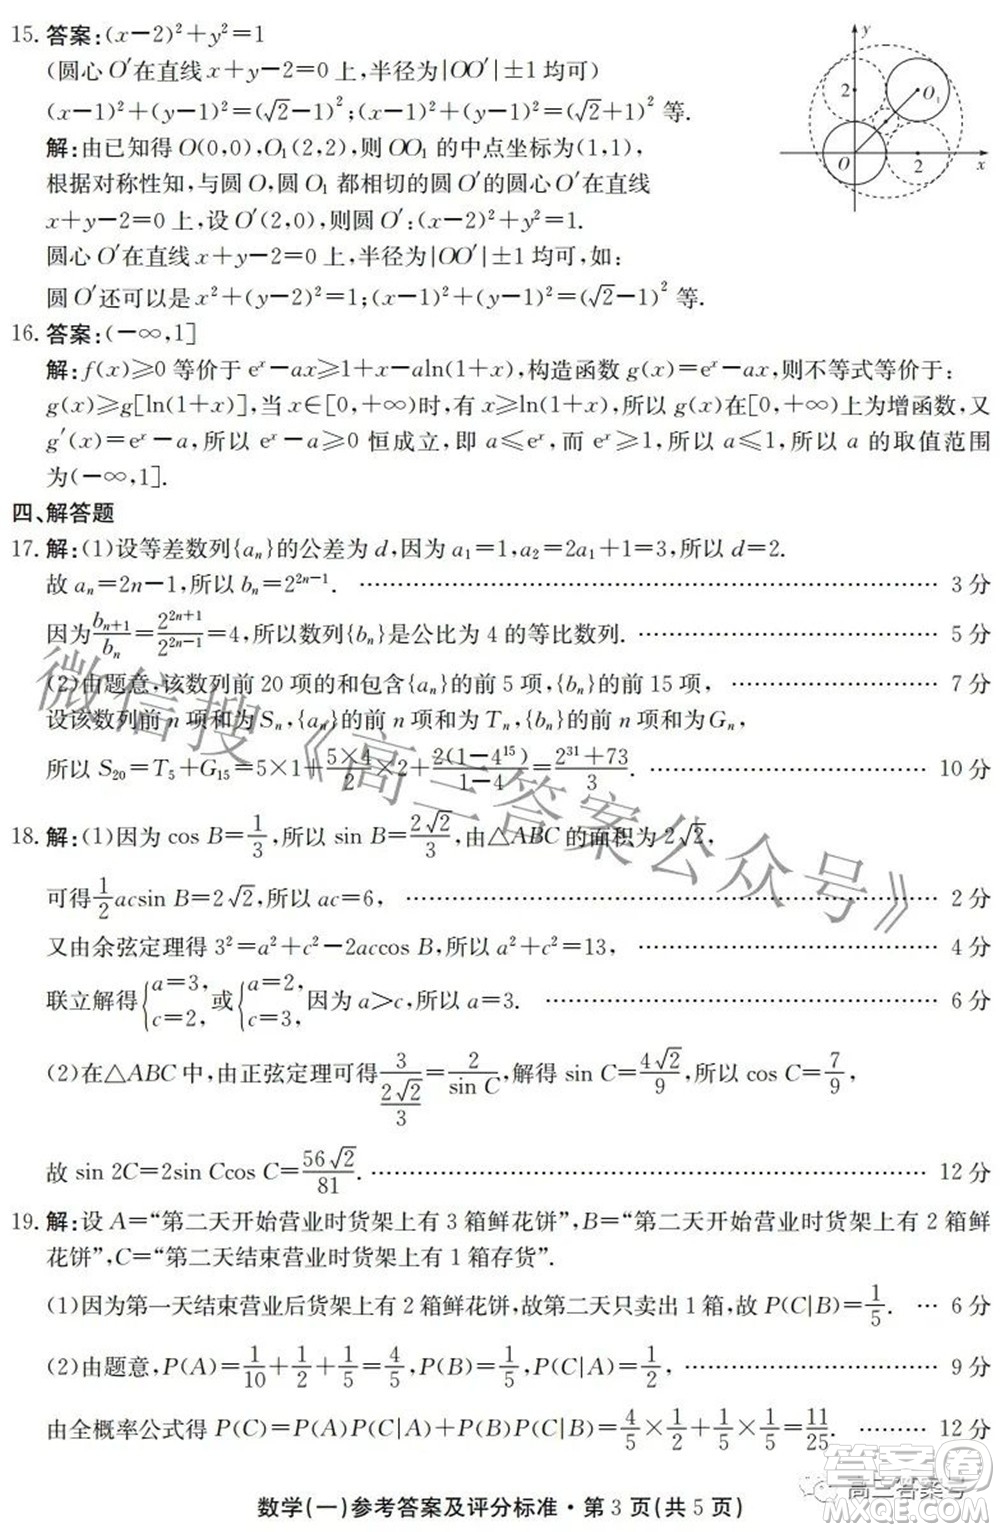 15. 答案:(x−2)²+y²=1
(圆心 O′在直线 x+y−2=0 上,半径为|OO′|±1 均可)
(x−1)²+(y−1)²=(√2−1)²;(x−1)²+(y−1)²=(√2+1)² 等.
解:由已知得 O(0,0),O₁(2,2),则 OO₁ 的中点坐标为(1,1),
根据对称性知,与圆 O,圆 O₁ 都相切的圆 O′的圆心 O′在直线
x+y−2=0 上,设 O′(2,0),则圆 O′:(x−2)²+y²=1.
圆心 O′在直线 x+y−2=0 上,半径为|OO′|±1 均可,如:
圆 O′还可以是 x²+(y−2)²=1;(x−1)²+(y−1)²=(√2−1)² 等.
y
2
O₁
O
2
x
16. 答案:(−∞,1]
解:f(x)≥0 等价于 eˣ−ax≥1+x−aln(1+x),构造函数 g(x)=eˣ−ax,则不等式等价于:
g(x)≥g[ln(1+x)],当 x∈[0,+∞)时,有 x≥ln(1+x),所以 g(x)在[0,+∞)上为增函数,又
g′(x)=eˣ−a,所以 eˣ−a≥0 恒成立,即 a≤eˣ,而 eˣ≥1,所以 a≤1,所以 a 的取值范围
为(−∞,1].
四、解答题
17. 解:(1)设等差数列{aₙ}的公差为 d,因为 a₁=1,a₂=2a₁+1=3,所以 d=2.
故 aₙ=2n−1,所以 bₙ=2²ⁿ⁻¹. …… 3 分
因为 bₙ₊₁/bₙ=2²ⁿ⁺¹/2²ⁿ⁻¹=4,所以数列{bₙ}是公比为 4 的等比数列. …… 5 分
(2)由题意,该数列前 20 项的和包含{aₙ}的前 5 项,{bₙ}的前 15 项, …… 7 分
设该数列前 n 项和为 Sₙ,{aₙ}的前 n 项和为 Tₙ,{bₙ}的前 n 项和为 Gₙ,
所以 S₂₀=T₅+G₁₅=5×1+(5×4)/2×2+2(1−4¹⁵)/(1−4)=(2³¹+73)/3. …… 10 分
18. 解:(1)因为 cos B=1/3,所以 sin B=2√2/3,由△ABC 的面积为 2√2,
可得 1/2 acsin B=2√2,所以 ac=6, …… 2 分
又由余弦定理得 3²=a²+c²−2accos B,所以 a²+c²=13, …… 4 分
联立解得{a=3, c=2, 或{a=2, c=3, 因为 a>c,所以 a=3. …… 6 分
(2)在△ABC 中,由正弦定理可得 3/(2√2/3)=2/sin C,解得 sin C=4√2/9,所以 cos C=7/9,
故 sin 2C=2sin Ccos C=56√2/81. …… 12 分
19. 解:设 A=“第二天开始营业时货架上有 3 箱鲜花饼”,B=“第二天开始营业时货架上有 2 箱鲜
花饼”,C=“第二天结束营业时货架上有 1 箱存货”.
(1)因为第一天结束营业后货架上有 2 箱鲜花饼,故第二天只卖出 1 箱,故 P(C|B)=1/5. … 6 分
(2)由题意,P(A)=1/10+1/2+1/5=4/5,P(B)=1/5,P(C|A)=1/2, …… 9 分
由全概率公式得 P(C)=P(A)P(C|A)+P(B)P(C|B)=4/5×1/2+1/5×1/5=11/25. …… 12 分
数学(一)参考答案及评分标准·第 3 页(共 5 页)
微信搜《高三答案公众号》
高三答案号
答案圈
MXQE.COM